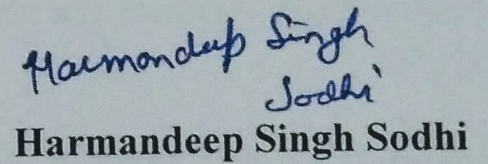 Harmandeep Singh
Sodhi
Harmandeep Singh Sodhi